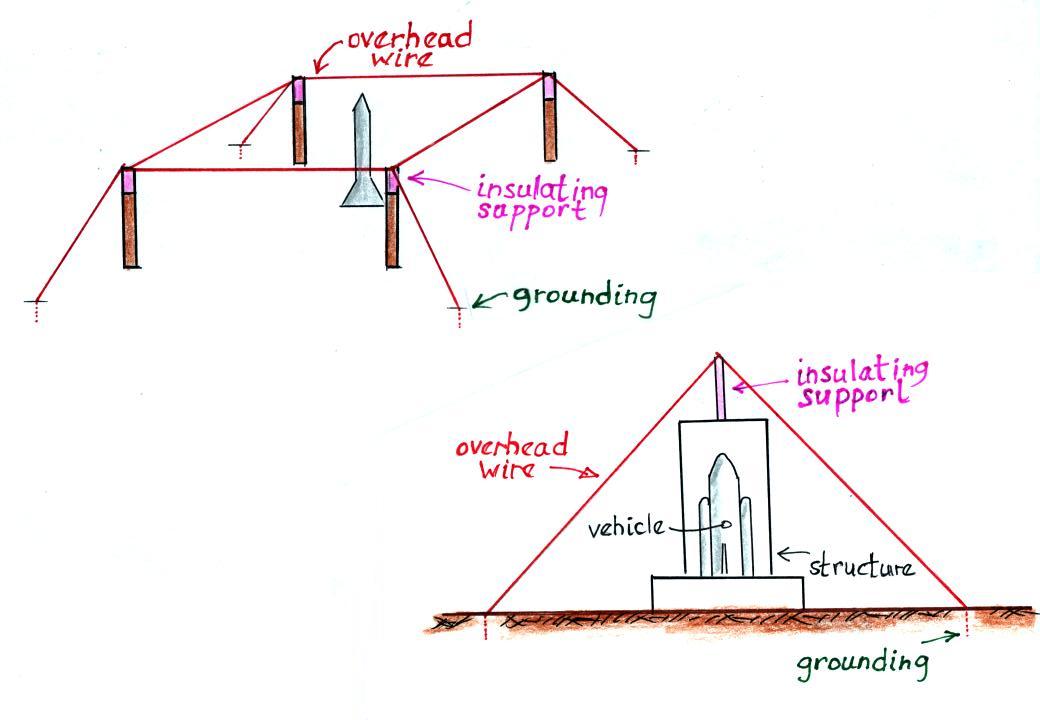 overhead
wire
insulating
support
grounding
insulating
support
overhead
wire
vehicle
structure
grounding